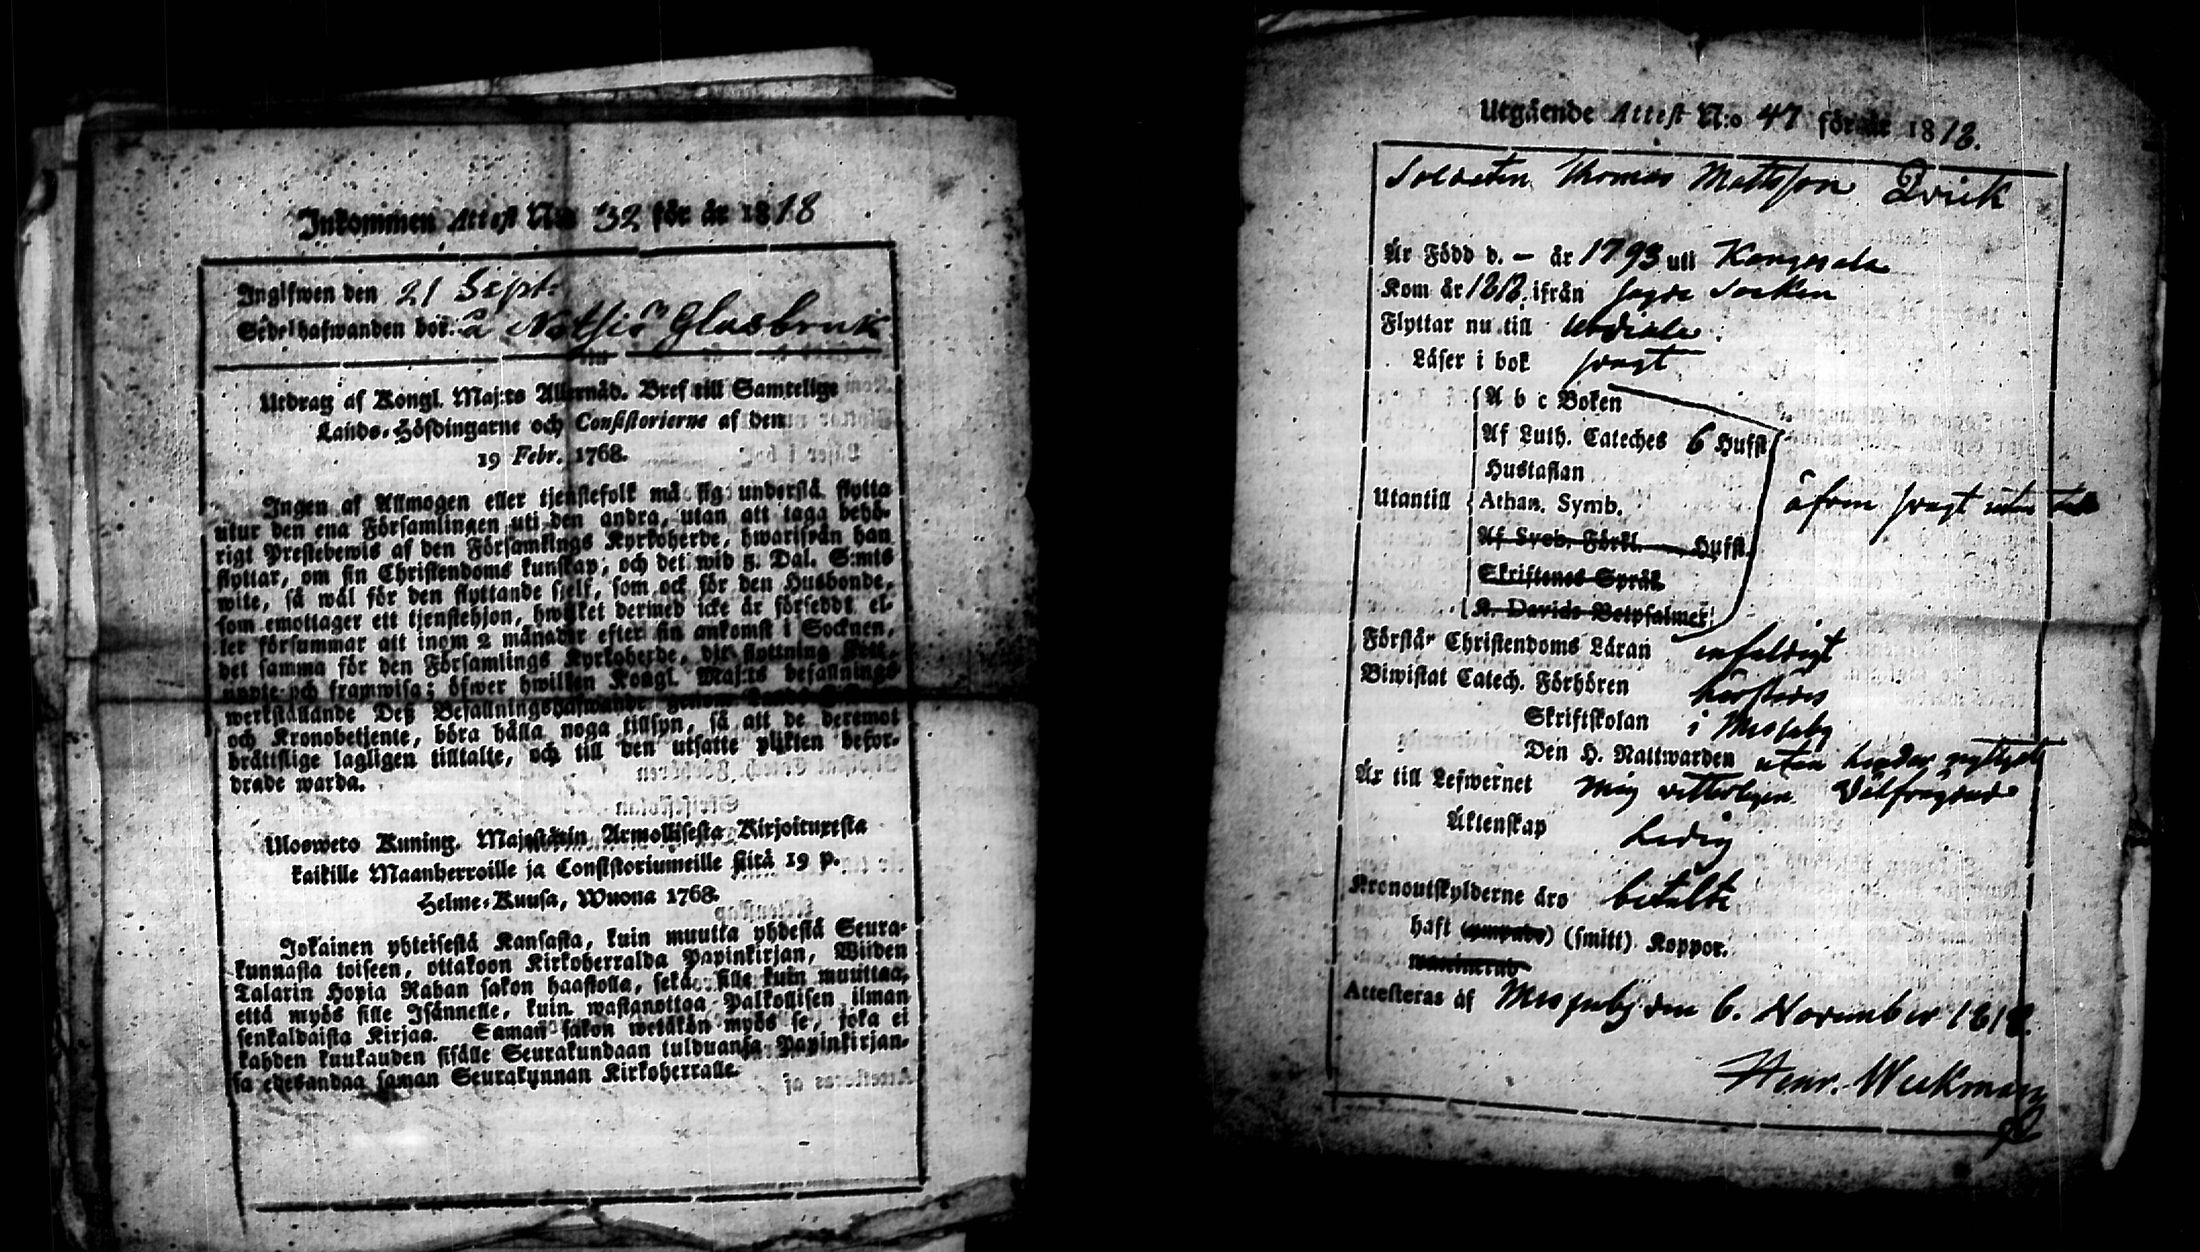 Inkommen Attest N:o 32 för år 1818
Ingifwen den 21 Sept.
Sedelhafwanden bor. å Notsjö Glasbruk
Utdrag af Kongl. Maj:ts Allernåd. Bref till Samtelige
Lands-Höfdingarne och Consistorierne af den
19 Febr. 1768.
Ingen af Allmogen eller tjenstefolk må sig understå flytta
utur den ena Församlingen uti den andra, utan att taga behö-
rigt Prestebewis af den Församlings Kyrkoherde, hwarifrån han
flyttar, om sin Christendoms kunskap; och det wid 5. Dal. S:mts
wite, så wäl för den flyttande sjelf, som ock för den Husbonde,
som emottager ett tjenstehjon, hwilket dermed icke är förseddt el-
ler försummar att inom 2 månader efter sin ankomst i Socknen,
det samma för den Församlings Kyrkoherde, dit flyttning skett,
uppte och framwisa; öfwer hwilken Kongl. Maj:ts befallnings
werkställande Deß Befallningshafwande genom
och Kronobetjente, böra hålla noga tillsyn, så att de deremot
bråttslige lagligen tilltalte, och till den utsatte plikten befor-
drade warda.
Ulosweto Kuning. Majestätin Armollisesta Kirjoituxesta
kaikille Maanherroille ja Consistoriumeille siitä 19 p.
Helme-Kuusa, Wuona 1768.
Jokainen yhteisestä Kansasta, kuin muutta yhdestä Seura-
kunnasta toiseen, ottakoon Kirkoherralda Papinkirjan, Wiiden
Talarin Hopia Rahan sakon haastolla, sekä sille kuin muuttaa,
että myös sille Isännelle, kuin wastanottaa Palkollisen ilman
senkaldaista Kirjaa. Saman sakon wetäkön myös se, joka ei
kahden kuukauden sisälle Seurakundaan tulduansa Papinkirjan-
sa edesandaa saman Seurakunnan Kirkoherralle.
Utgående Attest N:o 47 för år 1818.
Soldaten Thomas Mattsson Qvick
Är Född d. – år 1793 uti Kangasala
Kom år 1818 ifrån sagde Socken
Flyttar nu till Urdiala.
Läser i bok svagt
A b c Boken
Af Luth. Cateches 6 Hufst
Hustaflan
Utantill Athan. Symb. äfven svagt utan
Af Sveb. Förkl. Hufst.
Skriftenes Språk
K. Davids Botpsalmer
Förstår Christendoms Läran enfaldigt
Biwistat Catech. Förhören härstädes
Skriftskolan i Messuby
Den H. Nattwarden utan hinder nyttjat
Är till Lefwernet mig vetterligen Välfrägdad
Äktenskap Ledig
Kronoutskylderne äro betalte
haft (smitt) Koppor.
Attesteras af Messuby den 6. November 1818.
Henr. Wickman